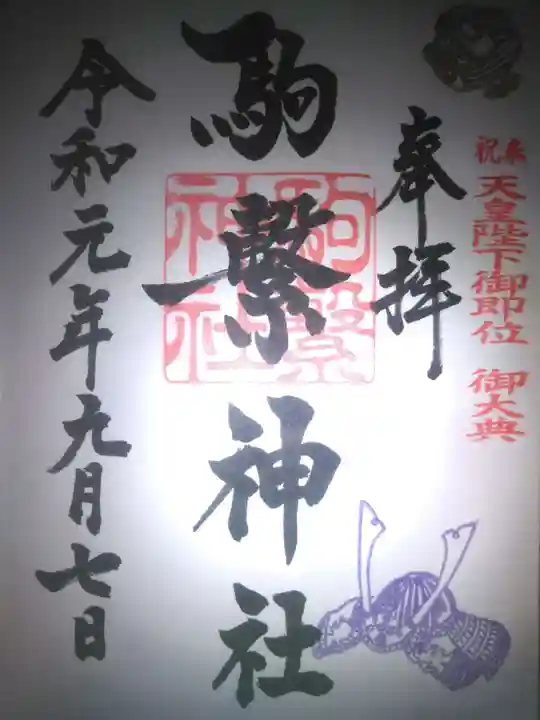 奉祝
天皇陛下御即位 御大典
奉拝
駒繋神社
駒繋
神社
令和元年九月七日